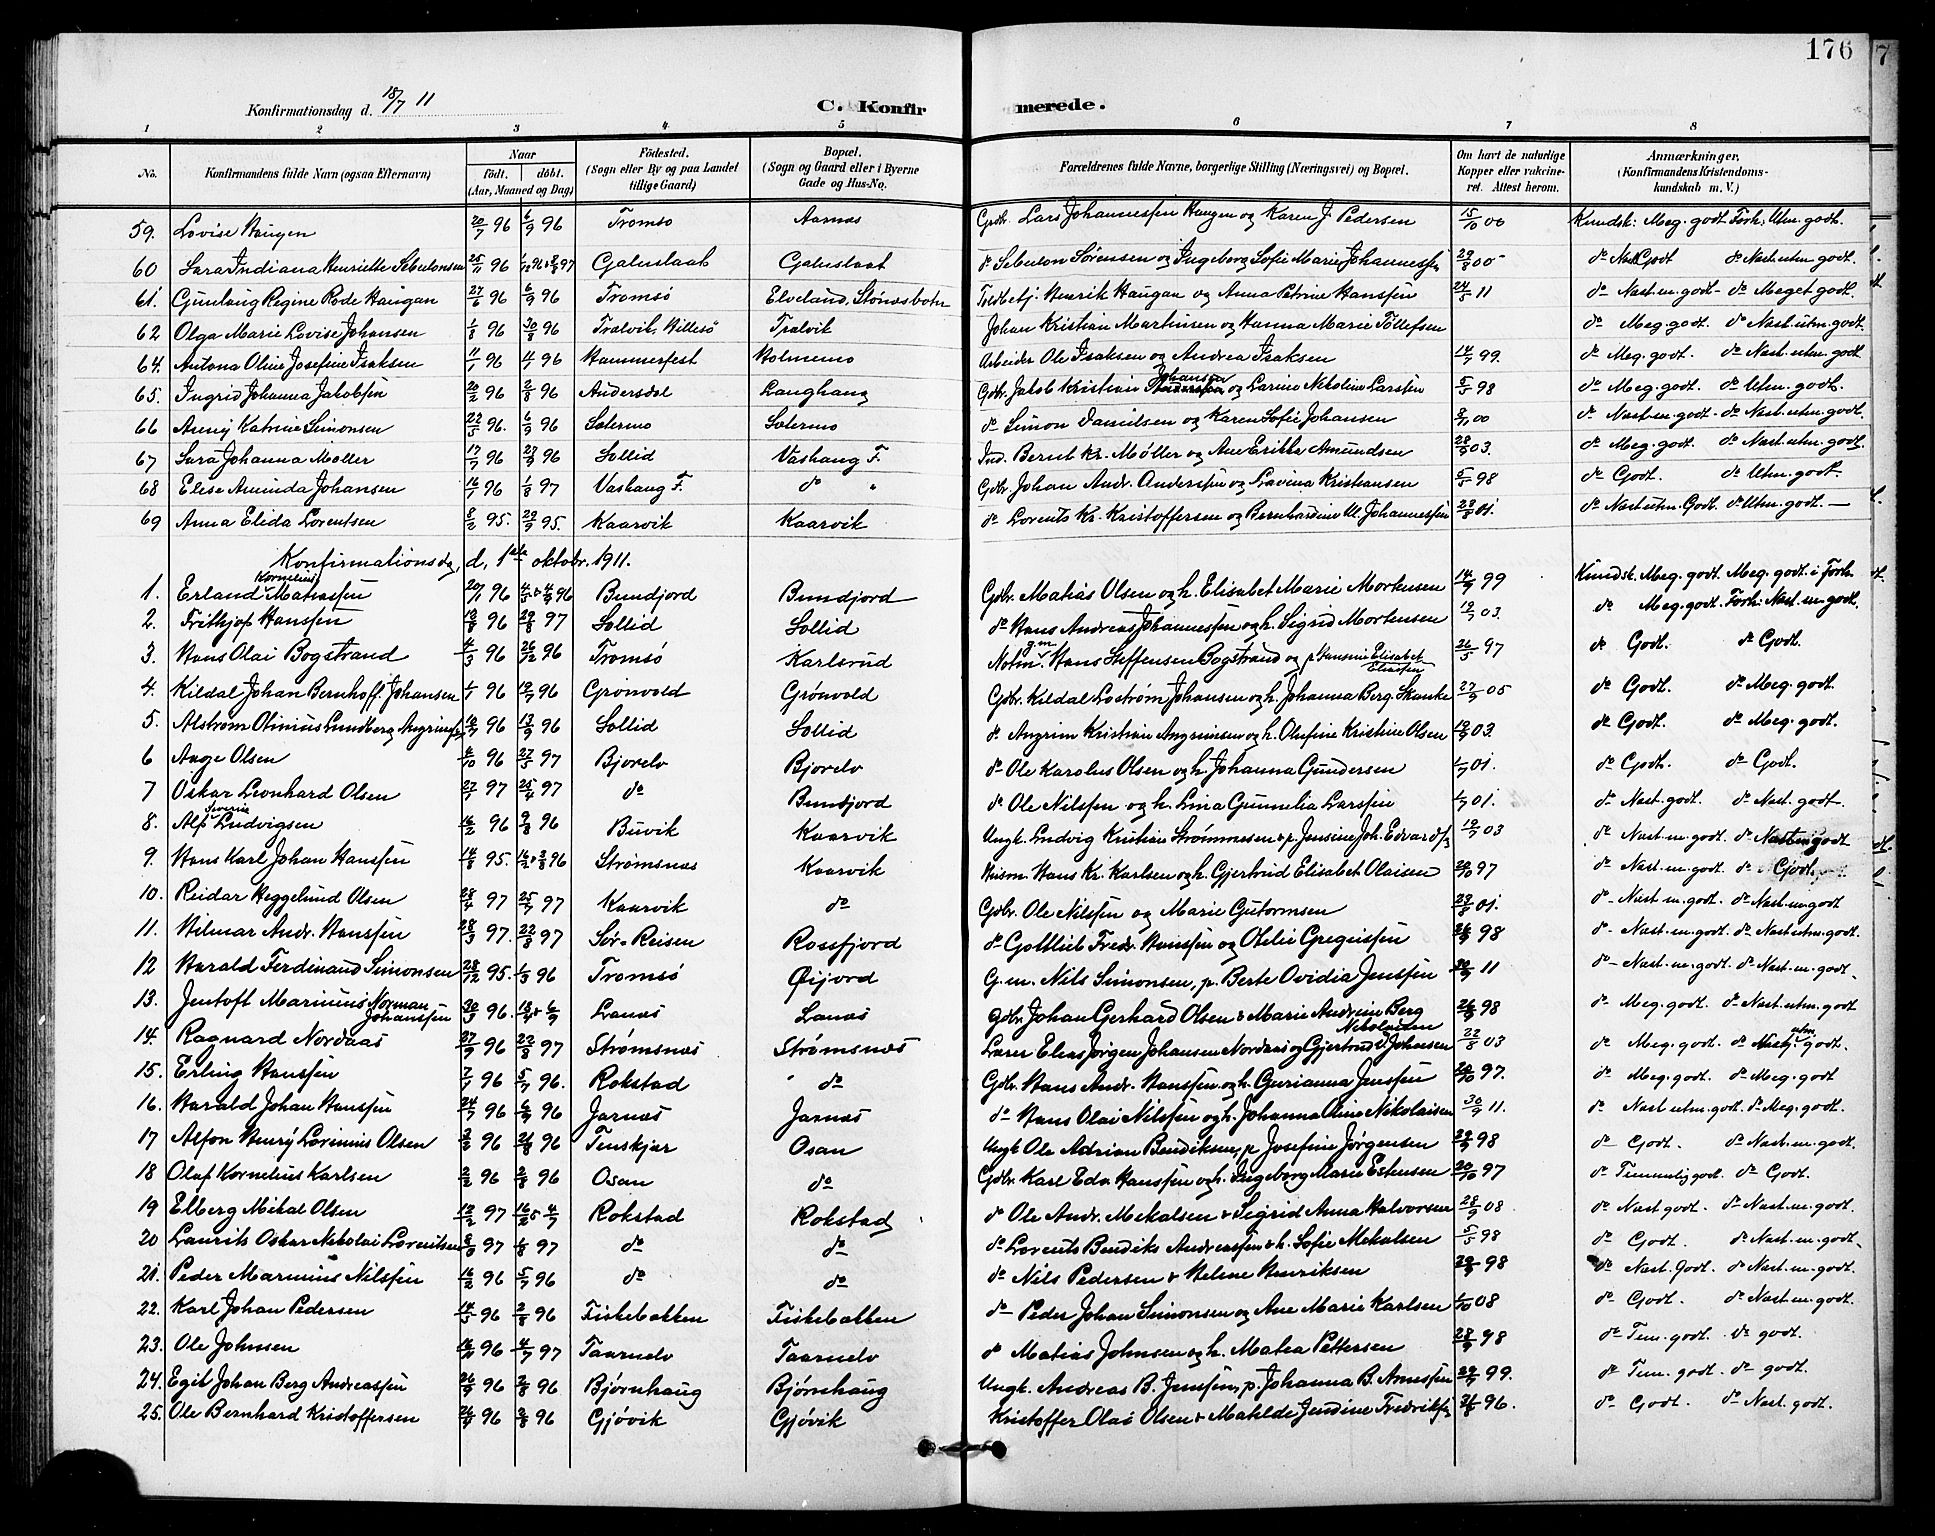 176
Konfirmationsdag d. 18/7 11
C. Konfirmerede.
1 2 3 4 5 6 7 8
No. Konfirmandens fulde Navn (ogsaa Efternavn) Naar født. døbt. (Aar, Maaned og Dag) Fødested. (Sogn eller By og paa Landet tillige Gaard) Bopæl. (Sogn og Gaard eller i Byerne Gade og Hus-No. Forældrenes fulde Navne, borgerlige Stilling (Næringsvei) og Bopæl. Om havt de naturlige Kopper eller vakcineret. Attest herom. Anmærkninger. (Konfirmandens Kristendomskundskab m. V.)
59. Lovise Haugen 20/7 96 6/9 96 Tromsø Aarnæs Gdbr. Lars Johannessen Haugen og Karen J. Pedersen 15/10 00 Kundsk: Meg. godt Forh: Utm. godt.
60 Sara Indiana Henriette Sebulonsen 25/11 96 Galuslaat Galuslaat do Sebulon Sørensen og Ingeborg Sofie Marie Johannessen do Nast Godt do Nast utm. godt.
61. Gunlaug Regine Rode Haugan 27/6 96 6/9 96 Tromsø Elveland, Stønæsbotn Toldbetj. Henrik Haugan og Anna Petrine Hanssen 24/5 11 do Nast m. godt - do Meget godt.
62 Olga Marie Lovise Johansen 1/8 96 30/8 96 Tralvik, Hillesø Tralvik Johan Kristian Martinsen og Hanna Marie Tollefsen do Meg. godt. do Nast. utm. godt.
64. Antona Oline Josefine Isaksen 11/1 96 4/4 96 Hammerfest Holmemo Arbeider Ole Isaksen og Andrea Isaksen 14/7 99. do Meg. godt. do Nast. utm. godt
65. Ingrid Johanna Jakobsen 20/2 96 2/8 96 Andersdal Langhaug Gdbr. Jakob Kristian Johansen og Larine Nikoline Larssen 5/5 98 do Meg. godt. do Utm. godt.
66 Anny Katrine Simonsen 22/5 96. 6/9 96 Sætermo Sætermo do Simon Danielsen og Karen Sofie Johansen do Nast m. godt - do Nast. utm. godt.
67 Sara Johanna Møller 17/7 96 27/9 96 Sollid Vashaug F. Ind. Bernt Kr. Møller og Ane Erikka Amundsen 28/9 03. do Meg. godt. do Nast. utm. godt.
68 Elise Aminda Johansen 16/1 96 1/8 97 Vashaug F. do " Gdbr. Johan Andr. Anderssen og Lavina Kristiansen 5/5 98 do Godt. do Utm. godt.
69 Anna Elida Lorentsen 8/2 95. 29/9 95. Kaarvik Kaarvik do Lorents Kr. Kristoffersen og Bernhardine Ul. Johannessen 23/8 01. do Nast utm. Godt. do Utm. godt. —
Konfirmationsdag, d, 1ste oktobr. 1911.
1. Erland Kornelius Matiassen 20/1 96 Bundjord Bundjord Gdbr. Matias Olsen og h. Elisabet Marie Mortensen 14/9 99 Kundsk. Meg. godt. Meg. godt i Forh.
2. Frithjof Hanssen 10/8 96 29/8 97 Sollid Sollid do Hans Andreas Johannessen og h. Sigrid Mortensen 19/7 03. do Meg. godt. Forh: Nast. m. godt.
3. Hans Olai Bogstrand 4/3 96 26/12 96 Tromsø Karlsrud Notm. g.m. Hans Steffensen Bogstrand og p. Hansine Elisabet Eliassen 26/5 97 do Godt. do Godt.
4. Kildal Johan Bernhoff Johansen 1/7 96 19/7 96 Grønvold Grønvold Gdbr. Kildal Lostrøm Johansen og h. Johanna Berg Skanke 27/9 05 do Godt. do Meg. godt.
5. Alstrøm Olinius Lundberg Angrimsen 10/7 96 13/9 96 Sollid Sollid do Angrim Kristian Angrimsen og h. Olufine Kristine Olsen 03. do Godt. do Meg. godt.
6 Aage Olsen 4/10 96 27/5 97 Bjorelv Bjorelv do Ole Karolus Olsen og h. Johanna Gundersen 1/7 01. do Godt. do Godt.
7 Oskar Leonhard Olsen 27/1 97 25/4 97 do Bundjord do Ole Nilssen og h. Lina Gunnelia Larssen 1/7 01. do Nast. godt. do Nast. godt.
8. Alf Severin Ludvigsen 16/2 96 9/8 96 Buvik Kaarvik Ungk. Ludvig Kristian Strømnæsen & p. Jensine Joh. Edvards. 19/7 03 do Nast. m. godt. do Nast m godt
9. Hans Karl Johan Hanssen 14/8 95. Strømsnæs Kaarvik Husm. Hans Kr. Karlsen og h. Gjertrud Elisabet Olaisen 20/10 97 do Nast. m. godt. do Godt.
10. Reidar Heggelund Olsen 28/4 97 25/7 97 Kaarvik do Gdbr. Ole Nilssen og Marie Gutormsen 23/8 01. do Nast. m. godt. do Nast. m. godt
11. Hilmar Andr. Hanssen 28/3 97. 22/8 97 Sør-Reisen Rossfjord do Gottlieb Fredr. Hanssen og Otelie Gregeissen 98 do Nast. m. godt. do Nast utm. godt.
12 Harald Ferdinand Simonsen 28/12 95. 1/3 96 Tromsø Øijord G.m. Nils Simonsen, p. Berte Ovidia Jenssen 30/9 11 do Nast. m. godt. do Nast. m. godt.
13. Jentoft Marinius Norman Johanssen 30/3 96. Lanæs Lanæs Gdbr. Johan Gerhard Olsen & Marie Andrine Berg 98 do Meg. godt. do Nast. utm. godt
14. Ragnard Nordaas 27/9 96 22/8 97 Strømsnæs Strømsnæs Lærer Elias Jørgen Johansen Nordaas og Gjertrud Nikolaisen Johansen 22/8 03 do Meg. godt. do utm. godt.
15. Erling Hanssen 7/1 96 5/7 96. Rokstad do Gdbr. Hans Andr. Hanssen og h. Gurianna Jenssen 20/10 97. do Meg. godt. do Meg. godt
16. Harald Johan Hanssen 24/7 96 6/9 96 Jarnæs Jarnæs do Hans Olai Nilssen og h. Johanna Oline Nikolaisen 30/9 11. do Nast utm. godt. do Meg. godt.
17. Alfon Henry Lorinius Olsen 3/2 96 96 Tenskjær Osan Ungk Ole Adrian Bendiksen, p Josefine Jørgensen 98 do Godt. do Nast. m. godt.
18 Olaf Kornelius Karlsen 2/2 96 2/8 96 Osan do Gdbr. Karl Edv. Hanssen og h. Ingeborg Marie Estensen 20/10 97 do Temmelig godt. do Godt.
19 Elberg Mikal Olsen 12/2 97 Rokstad Rokstad do Ole Andr. Mekalsen & Sigrid Anna Halvorsen 28/9 08 do Nast godt. do Nast. m. godt.
20 Laurits Oskar Nikolai Lorentsen 97 1/8 97 do do do Lorents Bendiks Andreassen & h. Sofie Mekalsen 5/5 98 do Godt. do Nast. m. godt.
21. Peder Marinius Nilssen 16/2 96 5/7 96 do do do Nils Pedersen & Helene Henriksen 98 do Nast. godt. do Nast. m. godt.
22. Karl Johan Pedersen 14/5 96 2/8 96 Fiskebakken Fiskebakken do Peder Johan Simonsen og Ane Marie Karlsen 1/10 08 do Godt. do Nast. m. godt.
23. Ole Johnsen 16/11 96 4/7 97 Taarnelv Taarnelv do Matias Johnsen og h. Matea Pettersen 28/9 98 do Tem. godt. do godt.
24. Egil Johan Berg Andreassen 96 2/8 96 Bjørnhaug Bjørnhaug Ungk. Andreas B. Jenssen, p. Johanna B. Arnessen 99. do Tem. godt. do godt.
25. Ole Bernhard Kristoffersen 96 2/8 96 Gjøvik Gjøvik Kristoffer Olai Olsen & Matilde Jendine Fredriks. 96. do Godt. do Nast. godt.